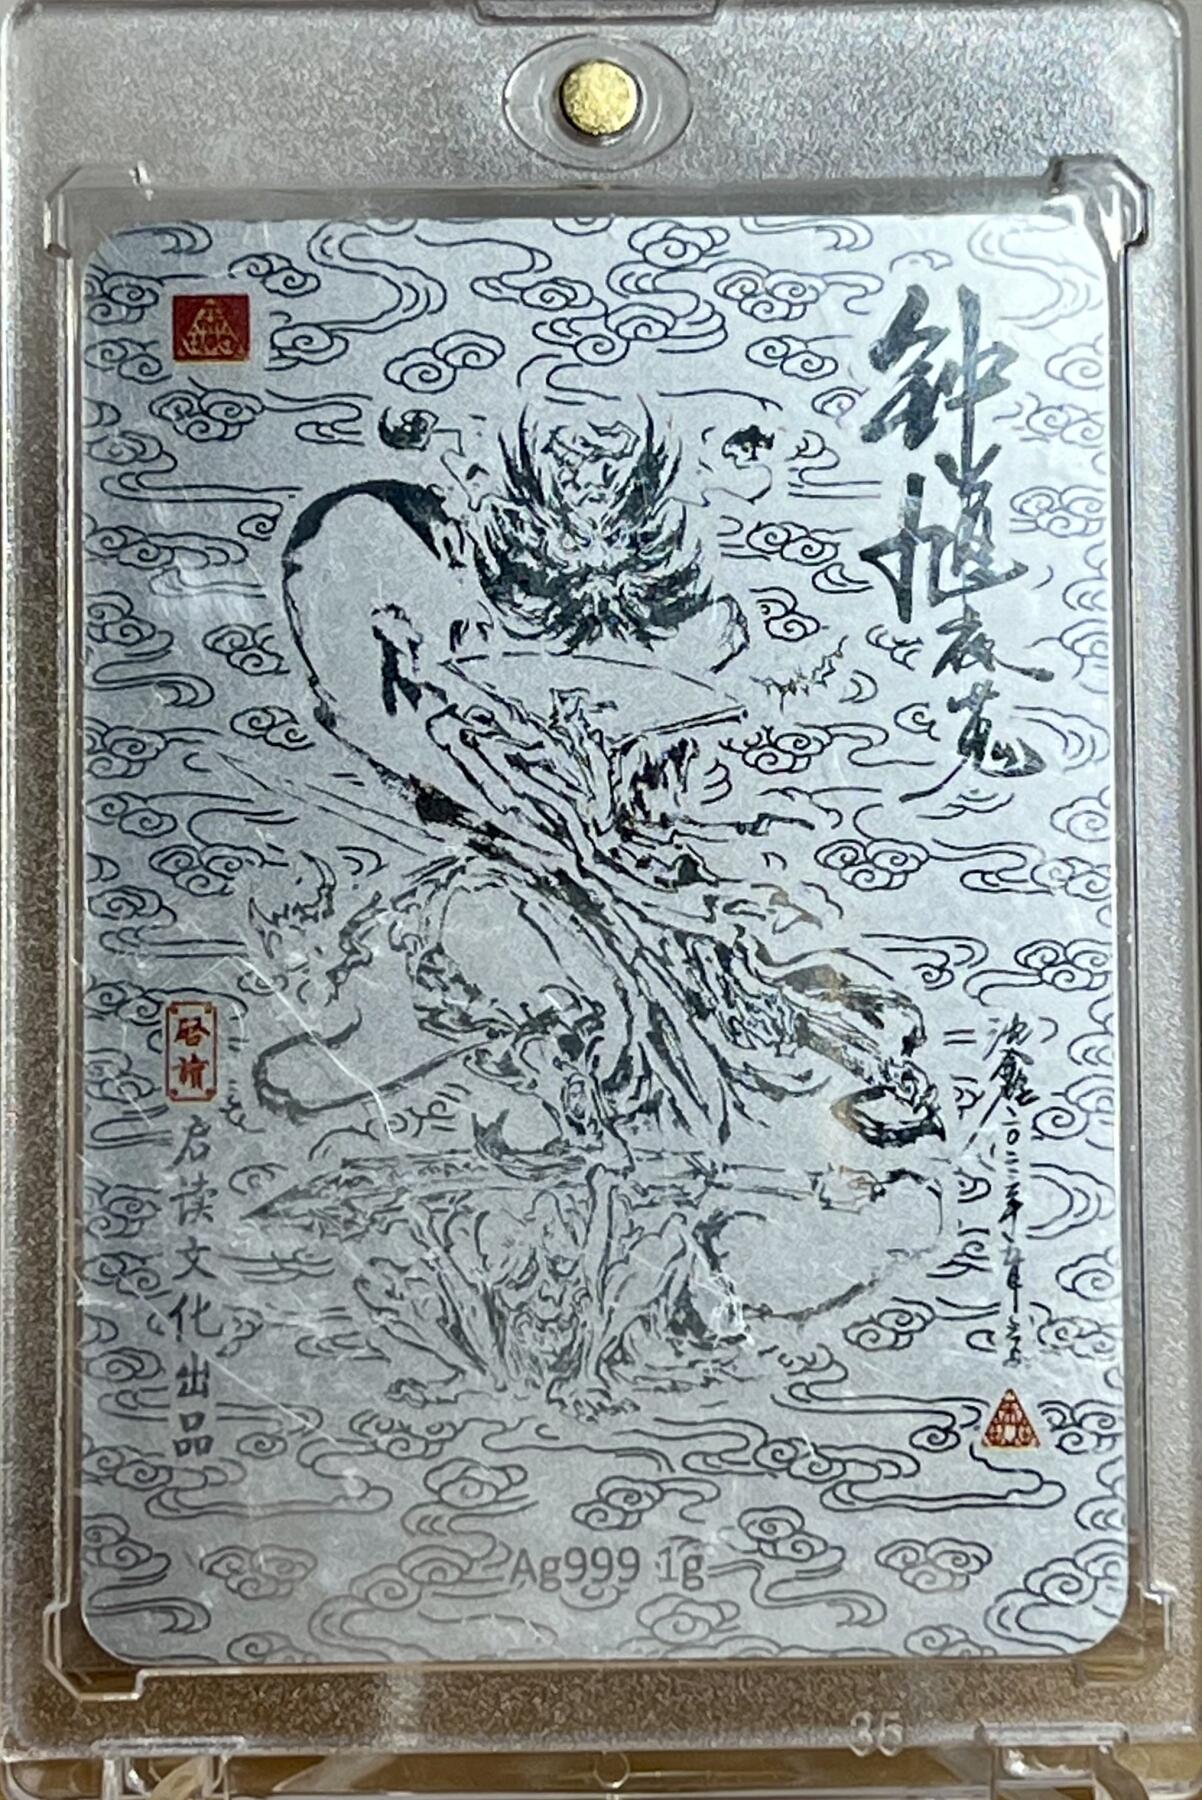 钟馗夜荒
沈鑫 二〇二二年九月
启读
启读文化出品
Ag999 1g
35